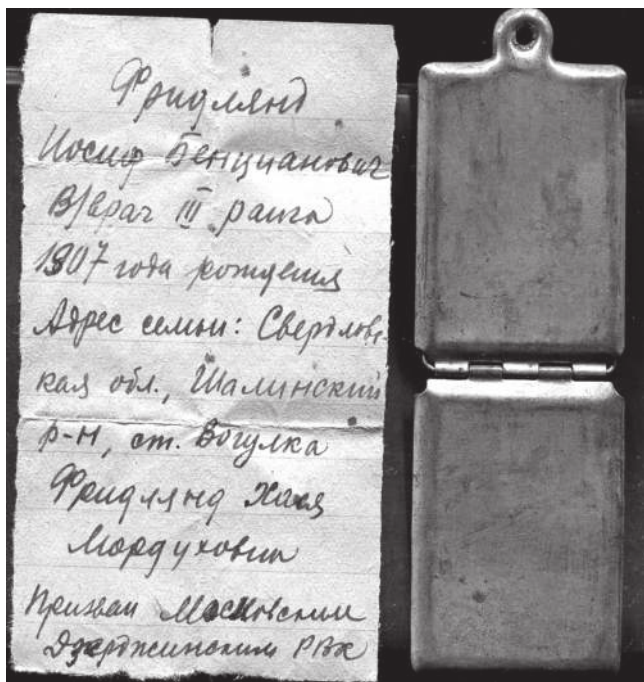 Фридлянд
Иосиф Бенцианович
В/врач III ранга
1907 года рождения
Адрес семьи: Свердловс-
кая обл., Шалинский
р-н, ст. Вогулка
Фридлянд Хася
Мордуховна
Призван Московским
Дзержинским РВК